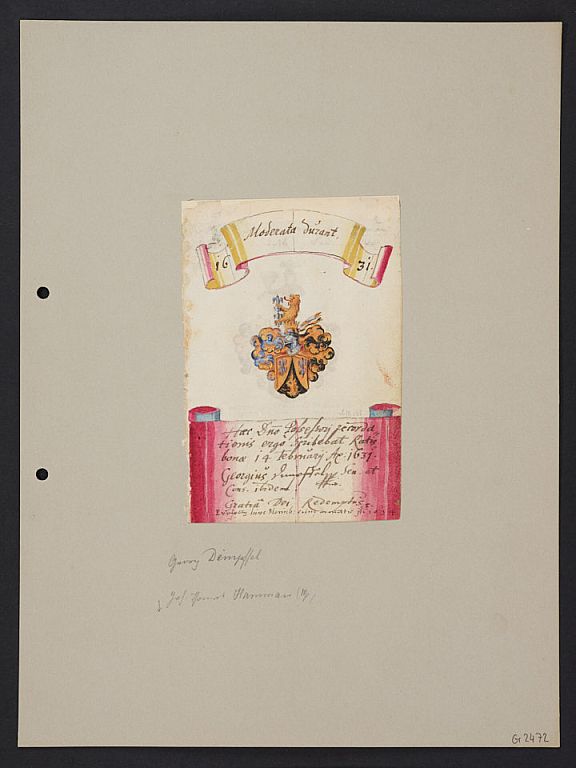 Moderata durant.
16 31.
Haec Dno Possessori recorda
tionis ergo scribebat Ratis
bonae 14 Februarij Ao 1631.
Georgius Sen. et
Cons. ibidem.
Gratiâ Dei Redemptus
Georg Dempffel
Joh. Hamman
Gr 2472